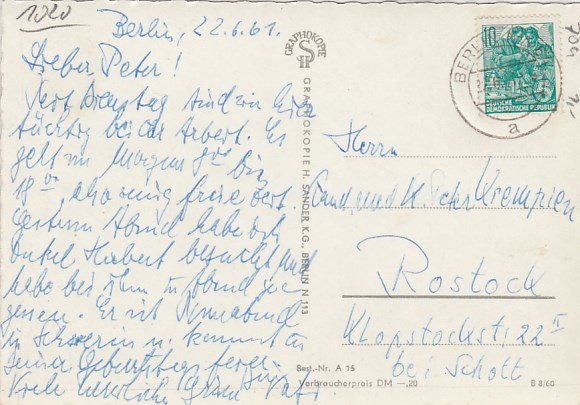 1020
Berlin, 22.6.61.
Lieber Peter!
Seit Dienstag sind wir hier
tüchtig bei der Arbeit. Es
geht von Morgens 8⁰⁰ bis
18⁰⁰, also wenig freie Zeit.
Gestern Abend habe ich
Onkel Herbert besucht und
habe bei ihm zu Abend ge-
gessen. Er ist Sonnabend
in Schwerin u. kommt zu
Deiner Geburtstags
Viele herzliche Grüße Papi
GRAPHOKOPIE
GRAPHOKOPIE H. SANDER K.G., BERLIN N 113
BERLIN
10
DEUTSCHE
DEMOKRATISCHE REPUBLIK
a
704
Herrn
Cand. med. H. Peter Krempien
Rostock
Klopstockstr. 22 II
bei Schott
Best.-Nr. A 15
Verbraucherpreis DM —,20
B 8/60